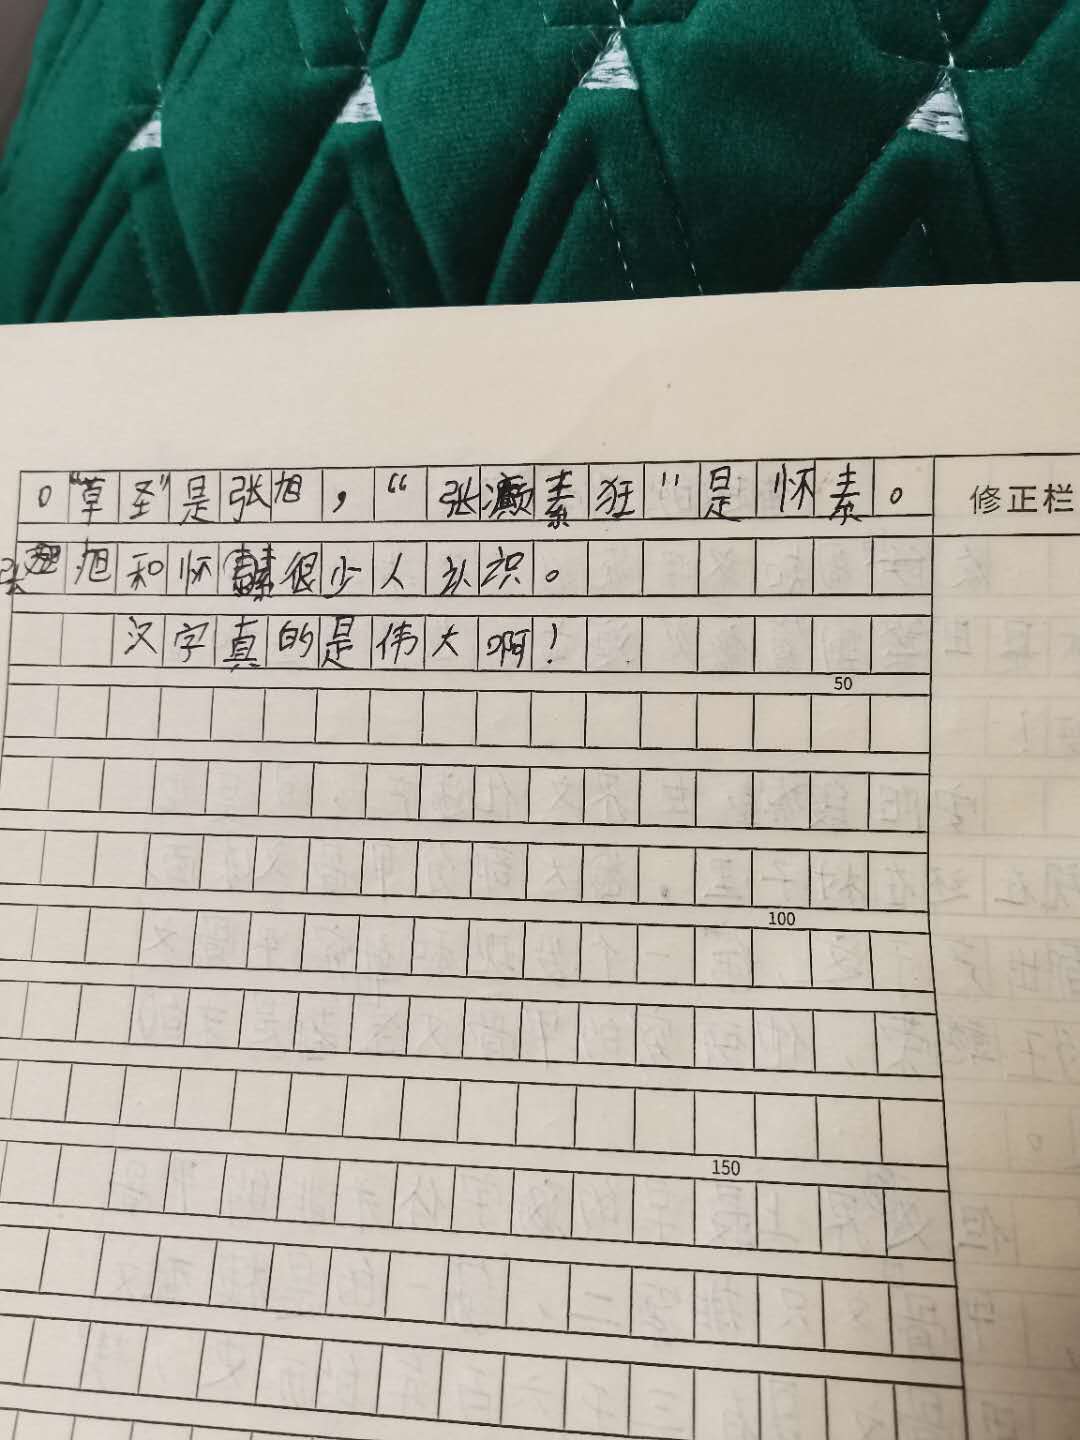 。“草圣”是张旭，“张癫素狂”是怀素。
修正栏
张旭和怀素很少人认识。
汉字真的是伟大啊！
50
100
150